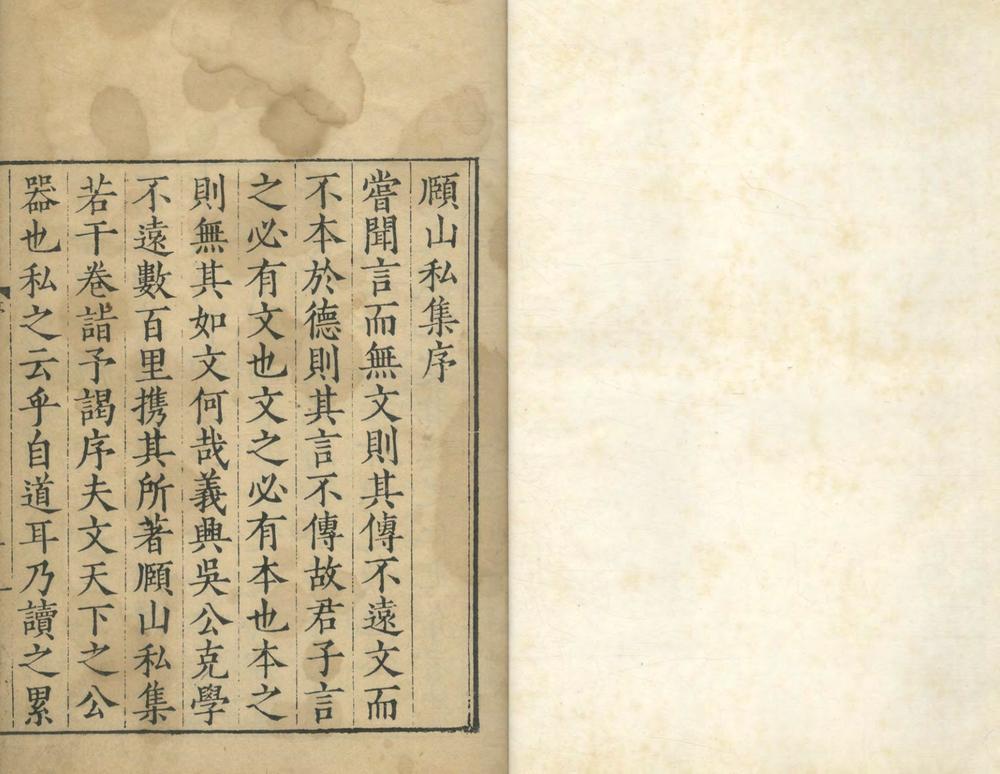 頤山私集序
嘗聞言而無文則其傳不遠文而
不本於德則其言不傳故君子言
之必有文也文之必有本也本之
則無其如文何哉義興吳公克學
不遠數百里携其所著頤山私集
若干卷詣予謁序夫文天下之公
器也私之云乎自道耳乃讀之累